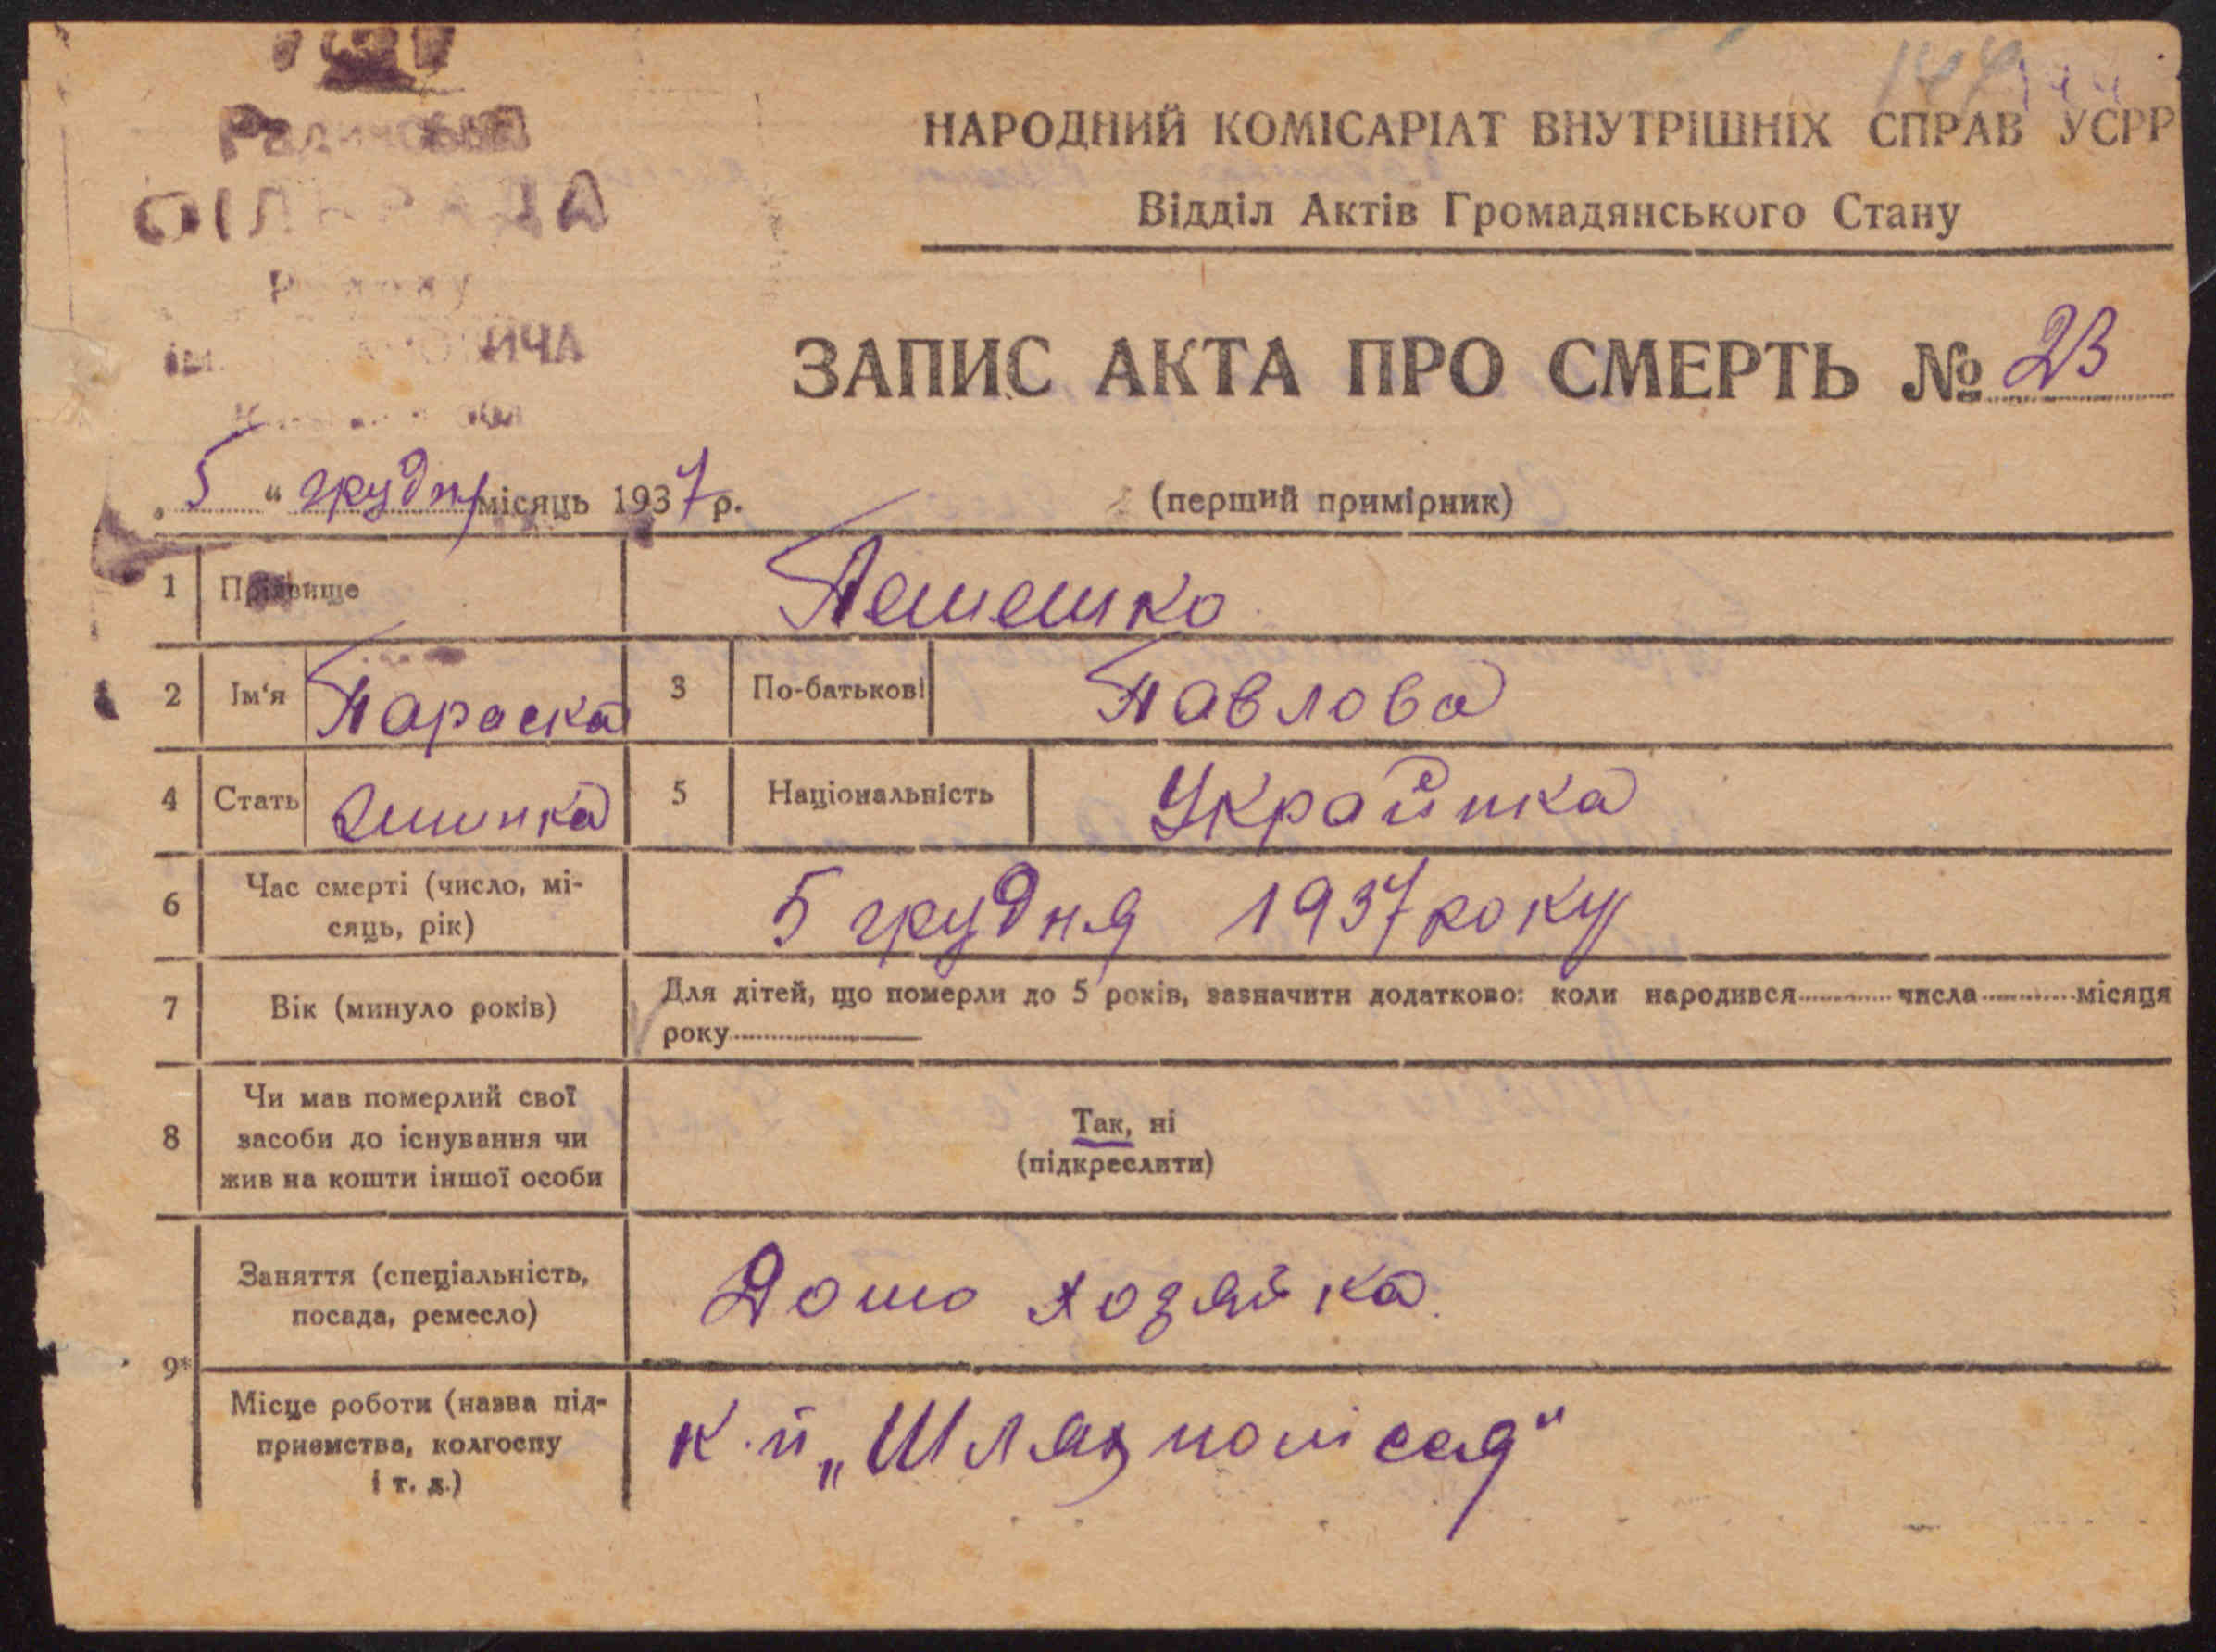 СІЛЬРАДА
НАРОДНИЙ КОМІСАРІАТ ВНУТРІШНІХ СПРАВ УСРР
Відділ Актів Громадянського Стану
ЗАПИС АКТА ПРО СМЕРТЬ № 23
„5“ грудня місяць 1937 р.
(перший примірник)
1 Прізвище Пешешко
2 Ім'я Параска 3 По-батькові Павлова
4 Стать 5 Національність Українка
6 Час смерті (число, мі-
сяць, рік) 5 грудня 1937 року
7 Вік (минуло років) Для дітей, що померли до 5 років, зазначити додатково: коли народився числа місяця
року
8 Чи мав померлий свої
засоби до існування чи
жив на кошти іншої особи
Так, ні
(підкреслити)
9* Заняття (спеціальність,
посада, ремесло) Домо хозяйка
Місце роботи (назва під-
приємства, колгоспу
і т. д.)
к-п „Шлях полісся"